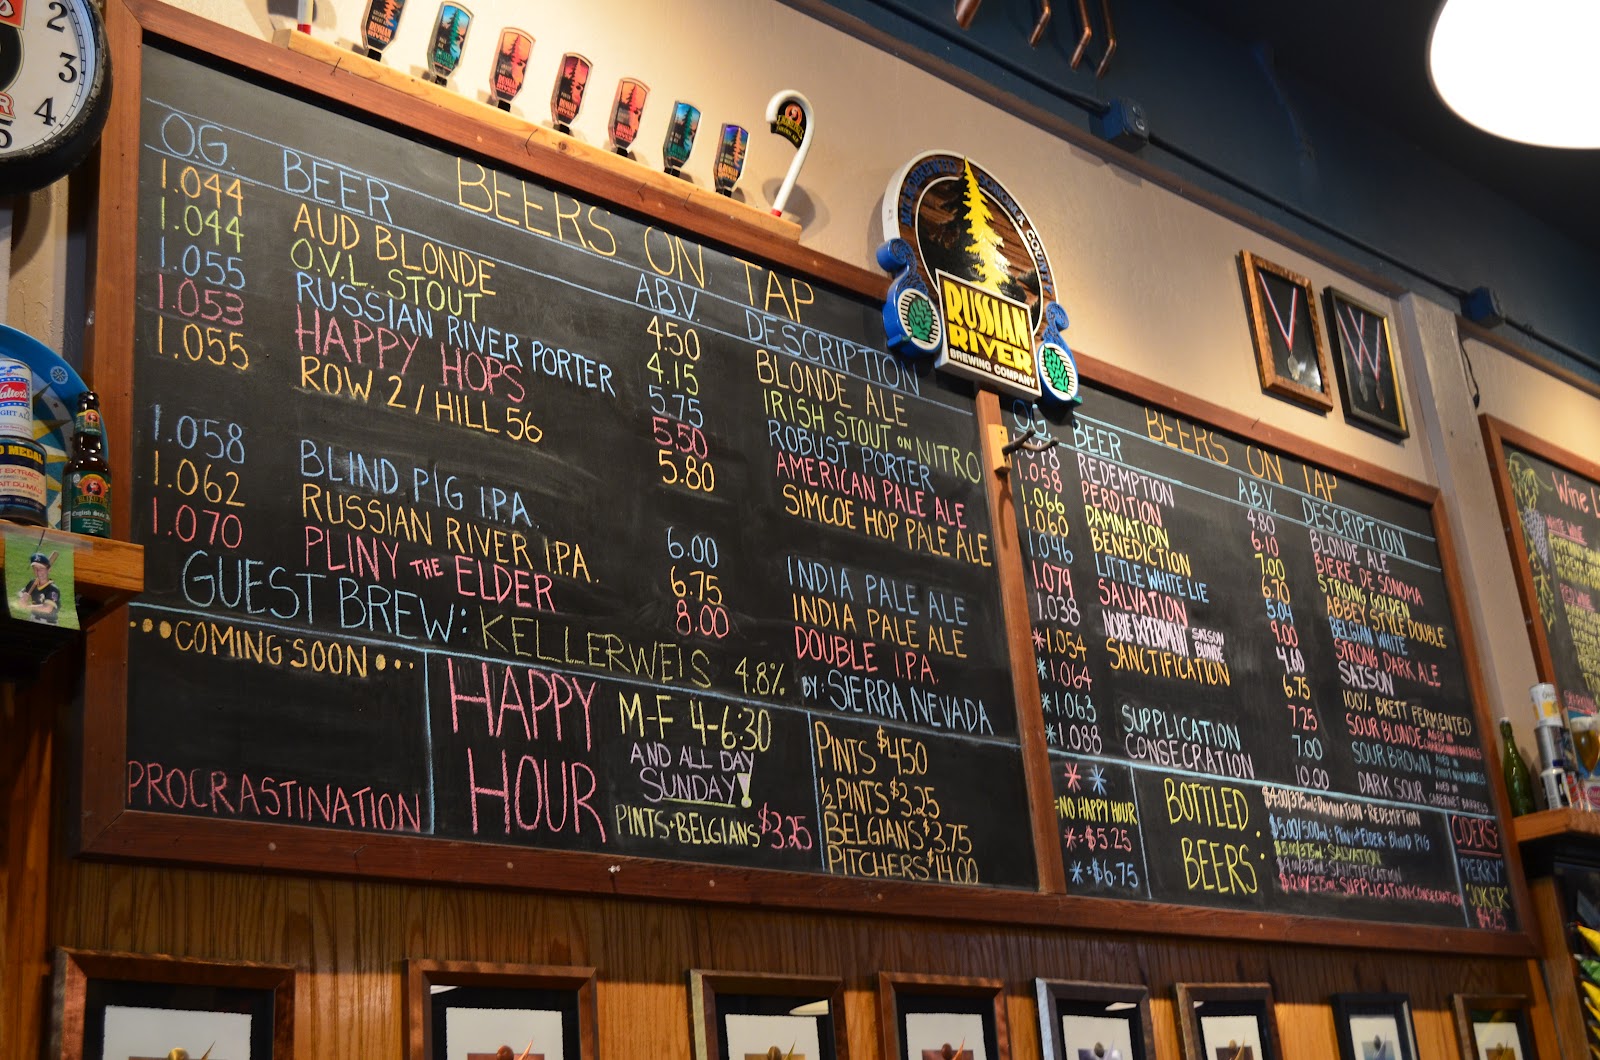 2
3
4
5
RUSSIAN RIVER
BREWING COMPANY
BEERS ON TAP
O.G. BEER A.B.V. DESCRIPTION
1.044 AUD BLONDE 4.50 BLONDE ALE
1.044 O.V.L. STOUT 4.15 IRISH STOUT ON NITRO
1.055 RUSSIAN RIVER PORTER 5.75 ROBUST PORTER
1.053 HAPPY HOPS 5.50 AMERICAN PALE ALE
1.055 ROW 2 / HILL 56 5.80 SIMCOE HOP PALE ALE
1.058 BLIND PIG I.P.A. 6.00 INDIA PALE ALE
1.062 RUSSIAN RIVER I.P.A. 6.75 INDIA PALE ALE
1.070 PLINY THE ELDER 8.00 DOUBLE I.P.A.
GUEST BREW: KELLERWEIS 4.8% BY: SIERRA NEVADA
•••COMING SOON•••
PROCRASTINATION
HAPPY HOUR
M-F 4-6:30
AND ALL DAY
SUNDAY!
PINTS•BELGIANS $3.25
PINTS $4.50
½ PINTS $3.25
BELGIANS $3.75
PITCHERS $14.00
BEERS ON TAP
O.G. BEER A.B.V. DESCRIPTION
REDEMPTION 4.80 BLONDE ALE
1.058 PERDITION 6.10 BIERE DE SONOMA
1.066 DAMNATION 7.00 STRONG GOLDEN
1.060 BENEDICTION 6.70 ABBEY STYLE DOUBLE
1.046 LITTLE WHITE LIE 5.04 BELGIAN WHITE
1.079 SALVATION 9.00 STRONG DARK ALE
1.038 NOBLE EXPERIMENT SAISON BLONDE 4.60 SAISON
*1.054 SANCTIFICATION 6.75 100% BRETT FERMENTED
*1.064 7.25 SOUR BLONDE AGED IN CHARDONNAY BARRELS
*1.063 SUPPLICATION 7.00 SOUR BROWN AGED IN PINOT NOIR BARRELS
*1.088 CONSECRATION 10.00 DARK SOUR AGED IN CABERNET BARRELS
* *
=NO HAPPY HOUR
*=$5.25
*=$6.75
BOTTLED BEERS:
DAMNATION•REDEMPTION
$5.00/500ML: PLINY THE ELDER•BLIND PIG
SALVATION
SANCTIFICATION
SUPPLICATION•CONSECRATION
CIDERS:
"PERRY"
"JOKER"
$4.25
Wine
WHITE WINE